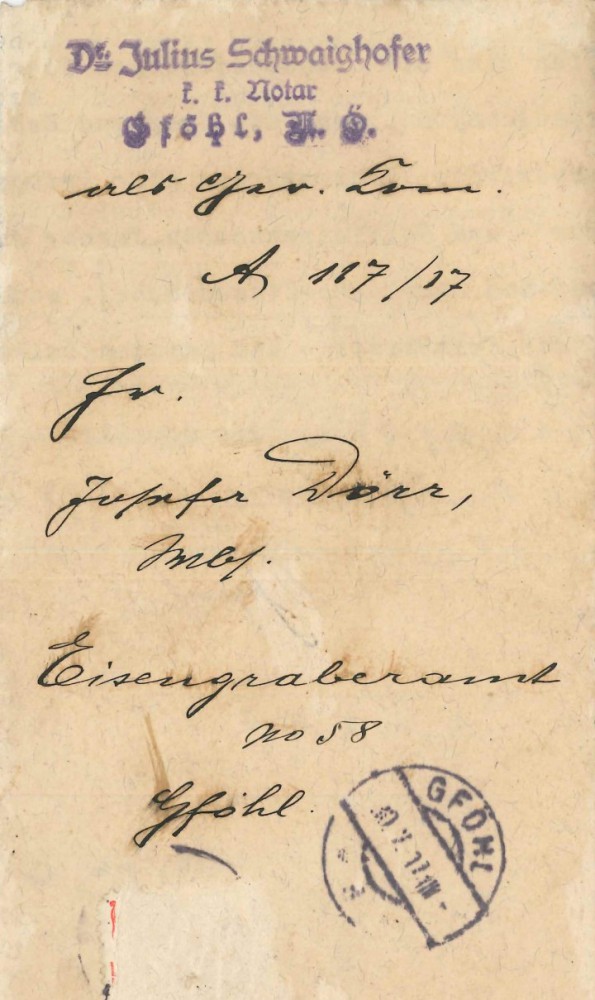 Dr. Julius Schwaighofer
k. k. Notar
Gföhl, N. Ö.
als Ger. Kom.
A 117/17
Fr.
Josefa Dörr,
Eisengraberamt
No 58
Gföhl.
GFÖHL